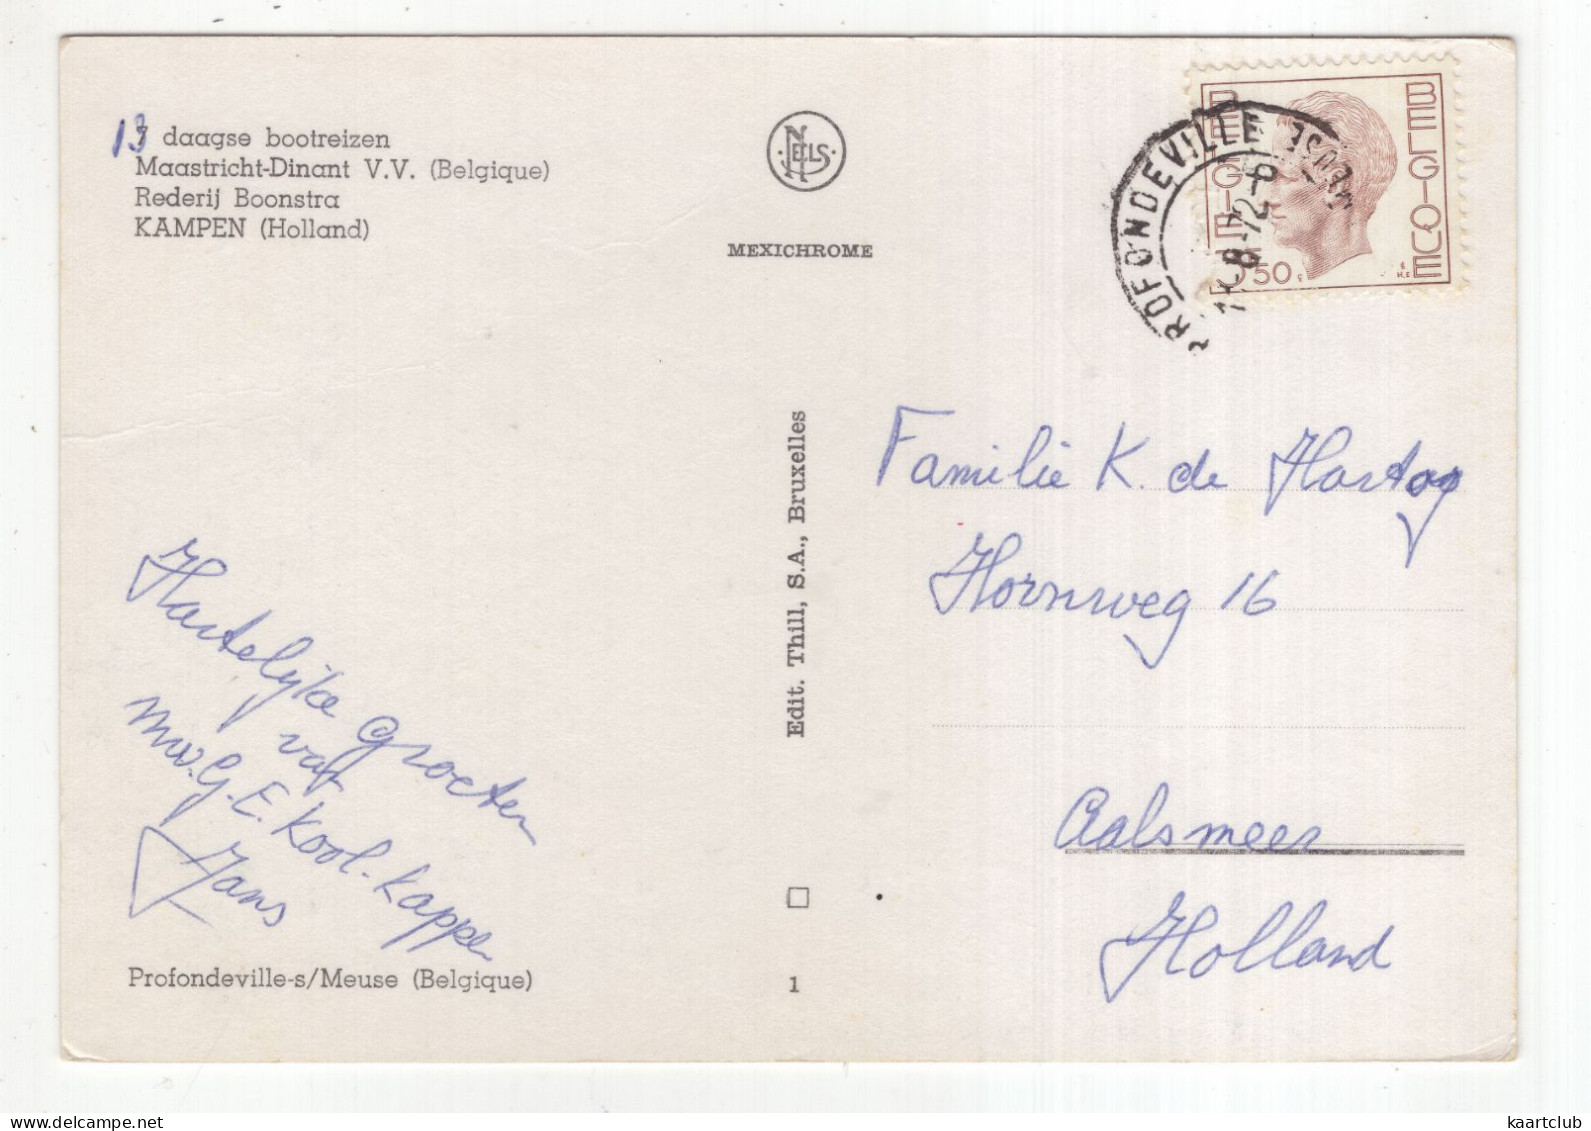 13 daagse bootreizen
Maastricht-Dinant V.V. (Belgique)
Rederij Boonstra
KAMPEN (Holland)
NELS
MEXICHROME
BELGIE BELGIQUE
3,50 F
PROFONDEVILLE
8-72
Edit. Thill, S.A., Bruxelles
Familie K. de Hartog
Hornweg 16
Aalsmeer
Holland
Hartelijke groeten
van
Mw. G. E. Kool-Kappen
Hans
Profondeville-s/Meuse (Belgique)
1
kaartclub